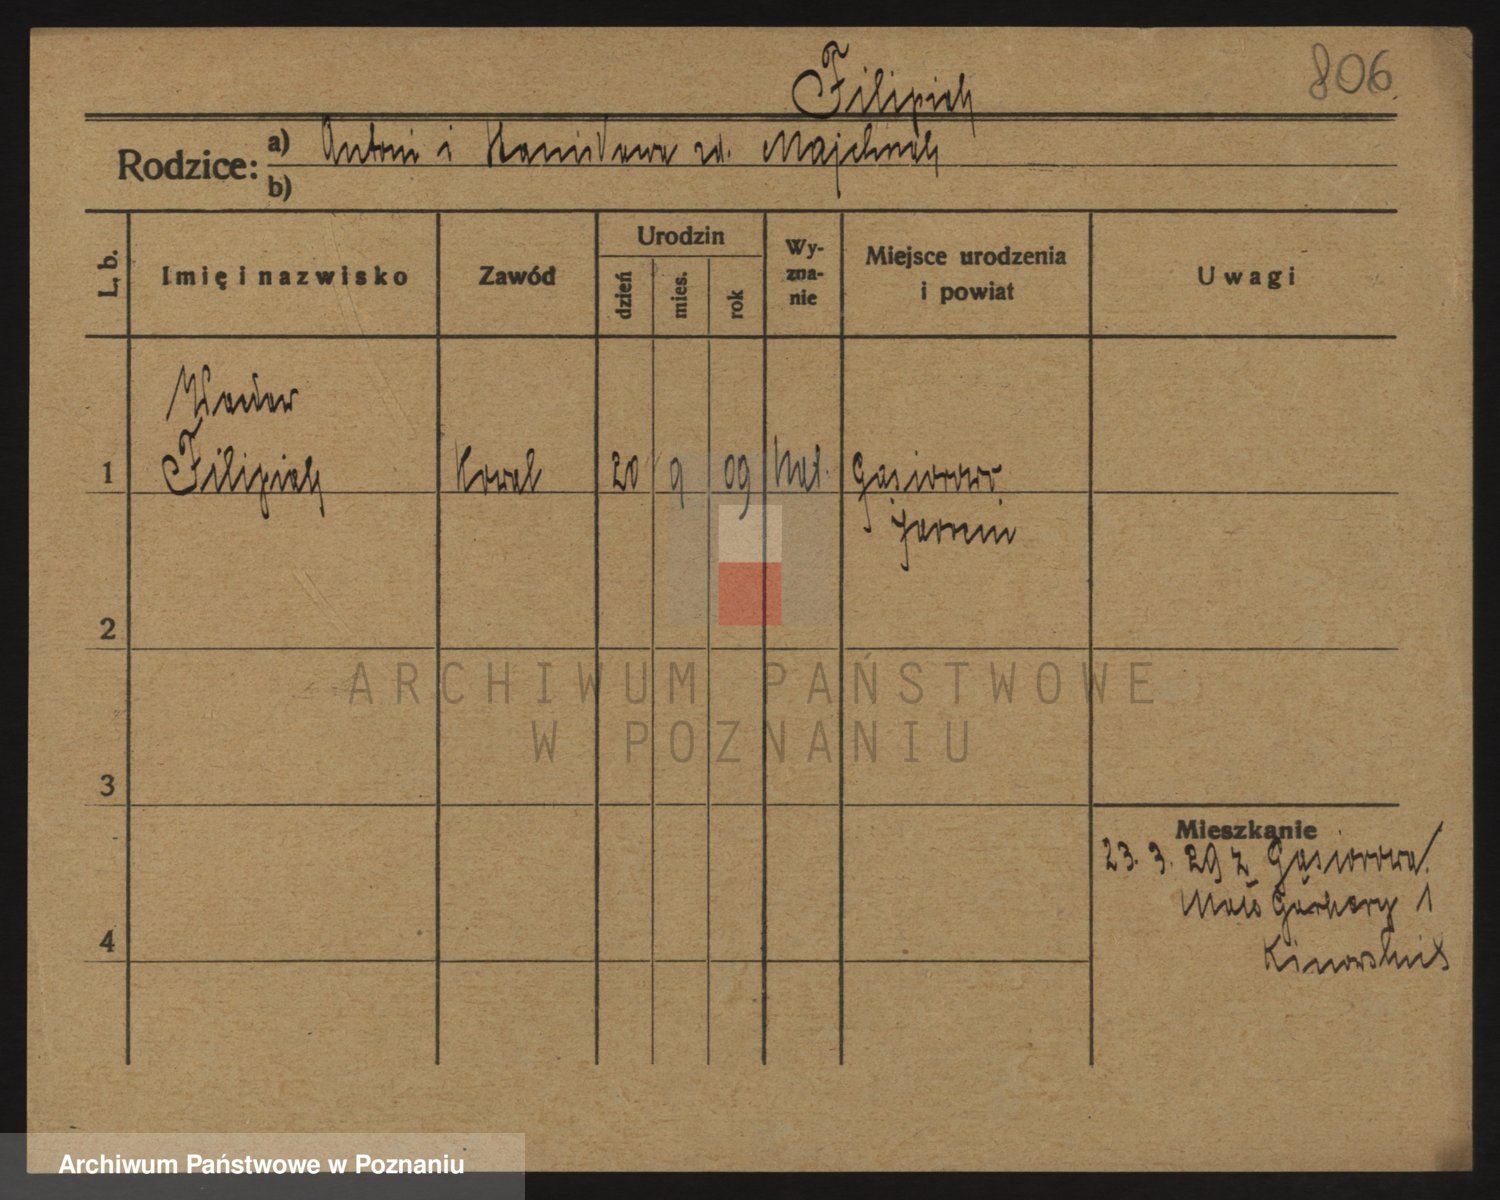 806
Filipiak
Rodzice: a) Antoni i Stanisława zd. Majchrzak
b)
L. b. Imię i nazwisko Zawód Urodzin dzień mies. rok Wy-zna-nie Miejsce urodzenia i powiat Uwagi
Wacław
1 Filipiak Kowal 20 9 09 kat. Gąsiorowo
Jarocin
2
ARCHIWUM PAŃSTWOWE
W POZNANIU
3
Mieszkanie
23. 3. 29 z Gąsiorowa/
Małe Garbary 1
4
Archiwum Państwowe w Poznaniu